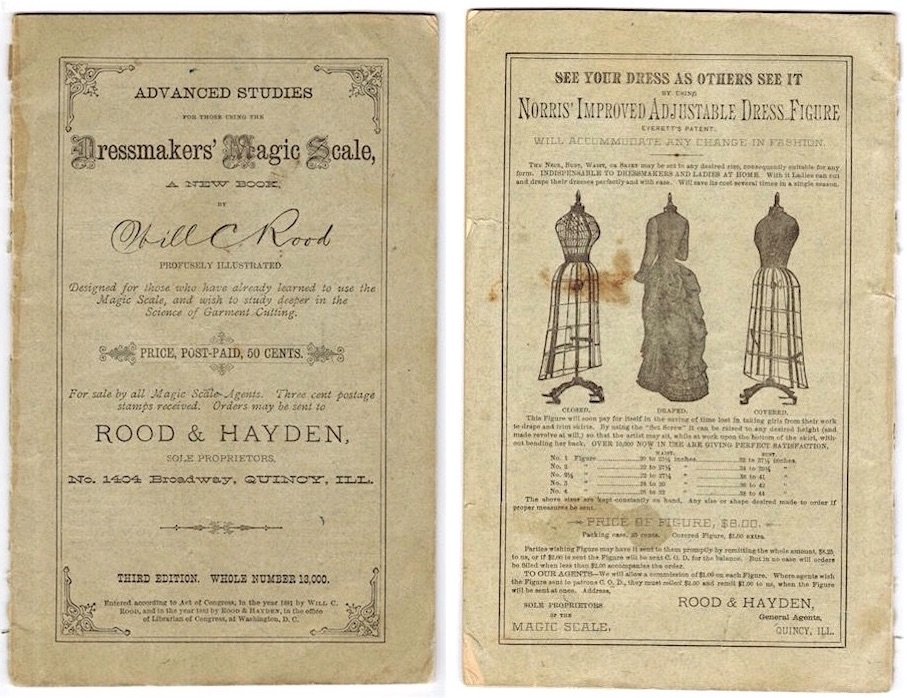 ADVANCED STUDIES
FOR THOSE USING THE
Dressmakers' Magic Scale,
A NEW BOOK,
BY
Will C. Rood
PROFUSELY ILLUSTRATED
Designed for those who have already learned to use the
Magic Scale, and wish to study deeper in the
Science of Garment Cutting.
PRICE, POST-PAID, 50 CENTS.
For sale by all Magic Scale Agents. Three cent postage
stamps received. Orders may be sent to
ROOD & HAYDEN,
SOLE PROPRIETORS,
No. 1404 Broadway, QUINCY, ILL.
THIRD EDITION. WHOLE NUMBER 13,000.
Entered according to Act of Congress, in the year 1881 by WILL C.
ROOD, and in the year 1883 by ROOD & HAYDEN, in the office
of Librarian of Congress, at Washington, D. C.
SEE YOUR DRESS AS OTHERS SEE IT
BY USING
NORRIS' IMPROVED ADJUSTABLE DRESS FIGURE
EVERETT'S PATENT.
WILL ACCOMMODATE ANY CHANGE IN FASHION.
THE NECK, BUST, WAIST, OR SKIRT may be set to any desired size, consequently suitable for any
form. INDISPENSABLE TO DRESSMAKERS AND LADIES AT HOME. With it Ladies can cut
and drape their dresses perfectly and with ease. Will save its cost several times in a single season.
CLOSED. DRAPED. COVERED.
This Figure will soon pay for itself in the saving of time lost in taking girls from their work
to drape and trim skirts. By using the "Set Screw" it can be raised to any desired height (and
made revolve at will,) so that the artist may sit, while at work upon the bottom of the skirt, with-
out bending her back. OVER 10,000 NOW IN USE ARE GIVING PERFECT SATISFACTION.
WAIST. BUST.
No. 1 Figure inches inches.
No. 2 " "
No. 2½ " "
No. 3 " "
No. 4 " 38 to 44 "
The above sizes are kept constantly on hand. Any size or shape desired made to order if
proper measures be sent.
PRICE OF FIGURE, $8.00.
Packing case, 25 cents. Covered Figure, $1.00 extra.
Parties wishing Figure may have it sent to them promptly by remitting the whole amount, $8.25
to us, or if $2.00 is sent the Figure will be sent C. O. D. for the balance. But in no case will orders
be filled when less than $2.00 accompanies the order.
TO OUR AGENTS—We will allow a commission of $1.00 on each Figure. Where agents wish
the Figure sent to patrons C. O. D., they must collect $2.00 and remit $1.00 to us, when the Figure
will be sent at once. Address,
SOLE PROPRIETORS
OF THE
MAGIC SCALE.
ROOD & HAYDEN,
General Agents,
QUINCY, ILL.